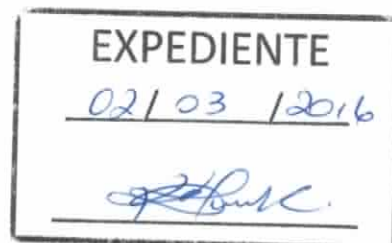 EXPEDIENTE
02/03/2016